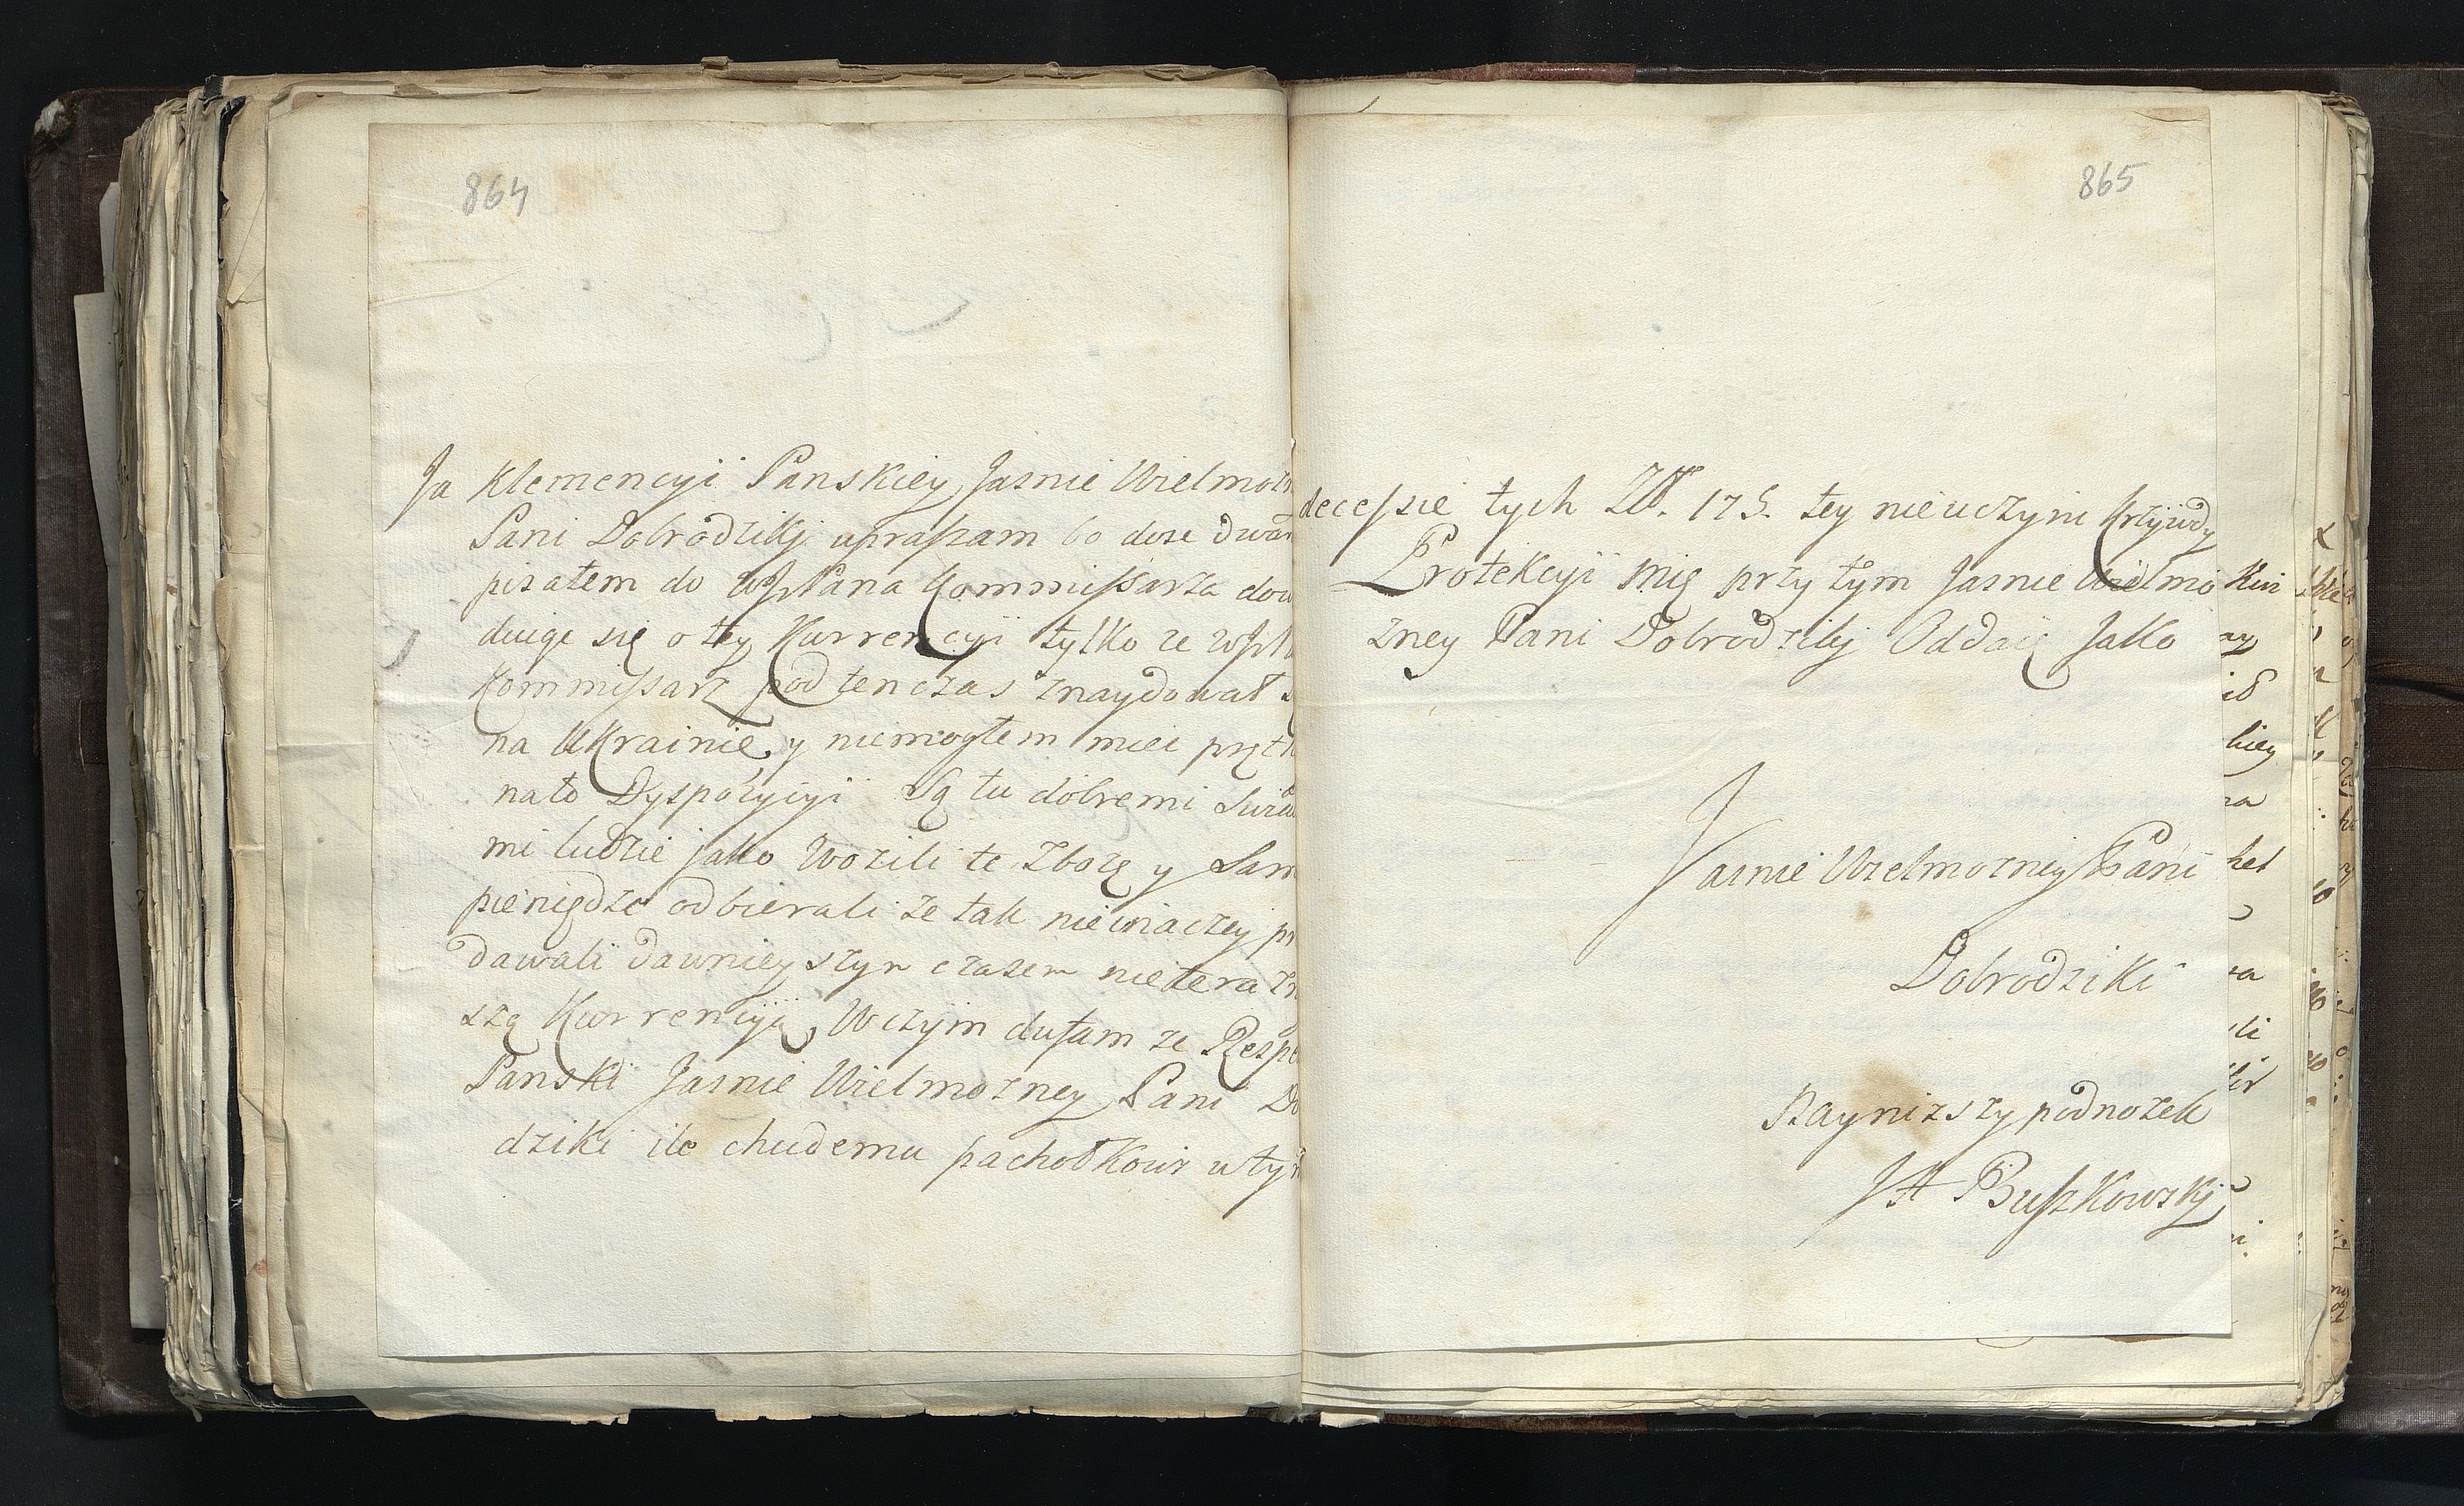 864
Ja Klemencyi Panskiey Jasnie Wielmoz
Pani Dobrodziki upraszam bo dwa
pisałem do WJPana Kommissarza dow
duige się o tey Kurrencyi tylko ze WJP
Kommissarz pod ten czas znaydował
na Ukrainie y niemogłem miec prętk
nato Dyspozycyi Są tu dobremi Swia
mi ludzie jako wozili te zboze y Sam
pieniędze odbierali ze tak nieinaczey pr
dawali dawnieyszym czasem nieterazn
szą Kurrencyią, Wczym dufam ze Respe
Panski Jasnie Wielmozney Pani Do
dziki ile chudemu pachołkowi wty
865
decessie tych Zł. 175. tey nieuczyni krzywdy
Protekcyi mię przytym Jasnie Wielmo
zney Pani Dobrodziki Oddaię Jako
Jasnie Wielmozney Pani
Dobrodziki
Nayniższy podnozek
Buszkowski